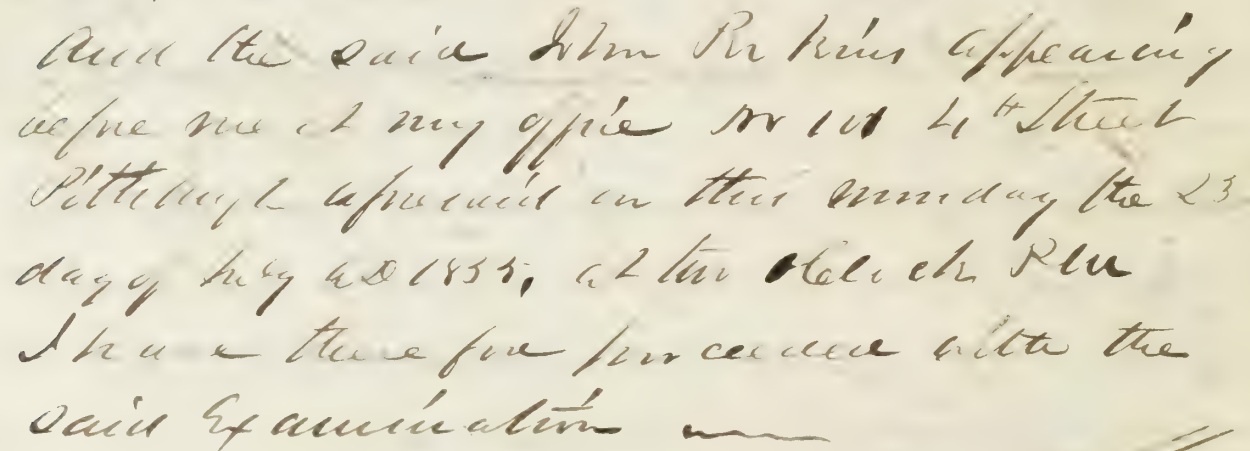 And the said John Perkins appearing
before me at my office No 101 4th Street
Pittsburgh aforesaid on this monday the 23
day of July AD 1855, at two Oclock PM
I have therefore proceeded with the
said Examination